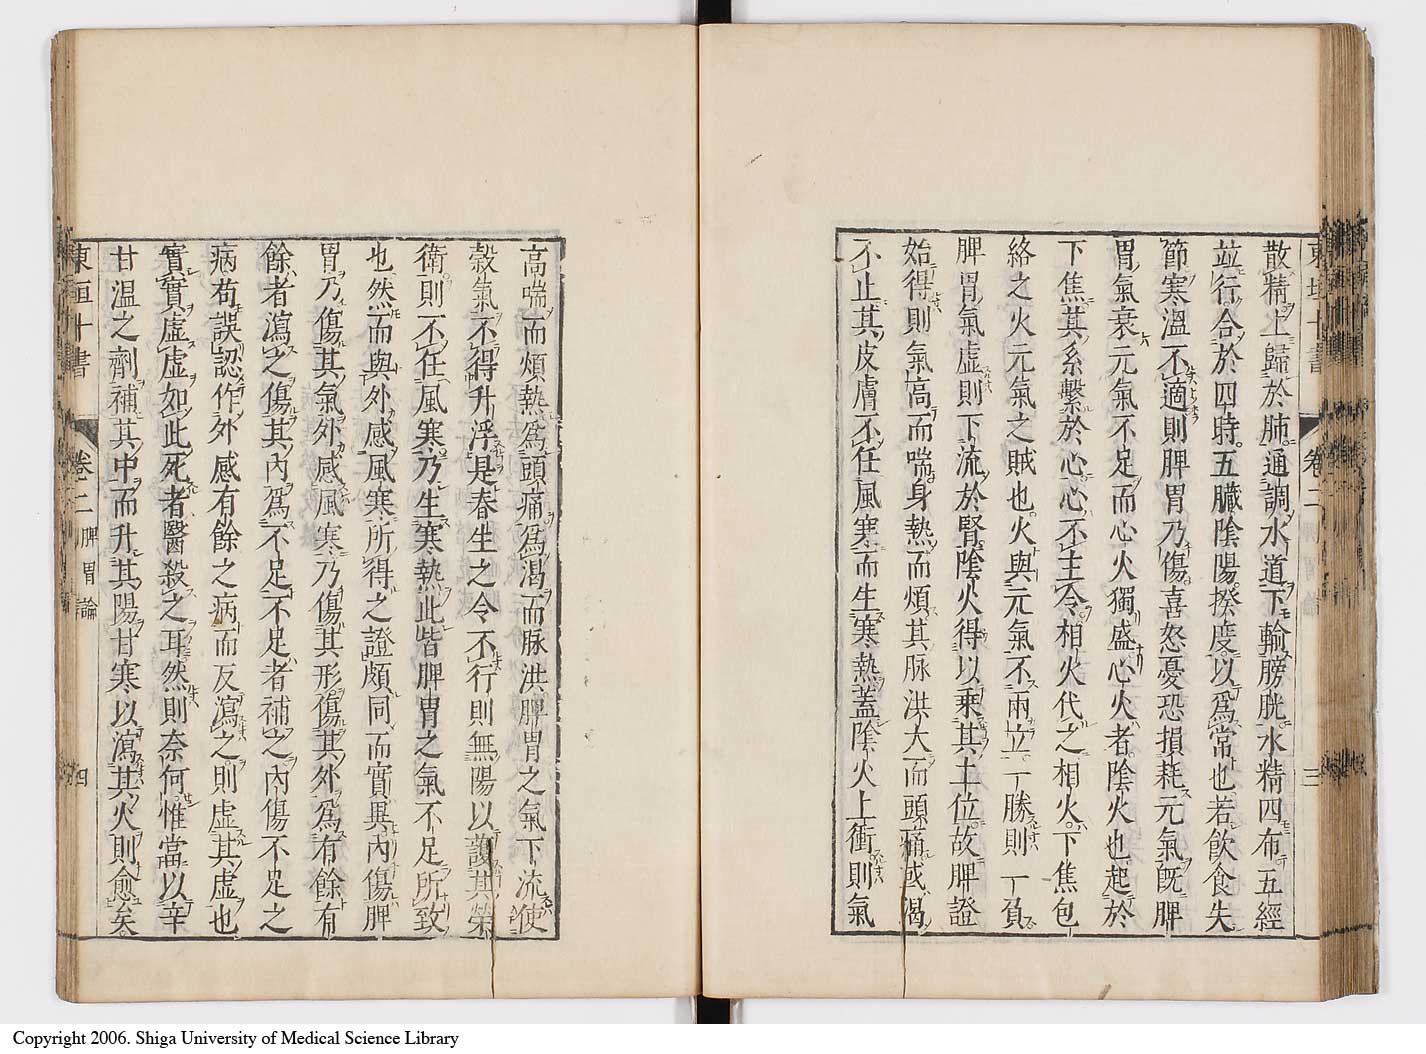 東垣十書 卷二 脾胃論 三
散精上歸於肺通調水道下輸膀胱水精四布五經
並行合於四時五臟陰陽揆度以爲常也若飲食失
節寒溫不適則脾胃乃傷喜怒憂恐損耗元氣旣脾
胃氣衰元氣不足而心火獨盛心火者陰火也起於
下焦其系繫於心心不主令相火代之相火下焦包
絡之火元氣之賊也火與元氣不兩立一勝則一負
脾胃氣虛則下流於腎陰火得以乘其土位故脾證
始得則氣高而喘身熱而煩其脉洪大而頭痛或渴
不止其皮膚不任風寒而生寒熱蓋陰火上衝則氣
高喘而煩熱爲頭痛爲渴而脉洪脾胃之氣下流使
穀氣不得升浮是春生之令不行則無陽以護其榮
衛則不任風寒乃生寒熱此皆脾胃之氣不足所致
也然而與外感風寒所得之證頗同而實異內傷脾
胃乃傷其氣外感風寒乃傷其形傷其外爲有餘有
餘者瀉之傷其內爲不足不足者補之內傷不足之
病苟誤認作外感有餘之病而反瀉之則虛其虛也
實實虛虛如此死者醫殺之耳然則奈何惟當以辛
甘溫之劑補其中而升其陽甘寒以瀉其火則愈矣
東垣十書 卷二 脾胃論 四
Copyright 2006. Shiga University of Medical Science Library